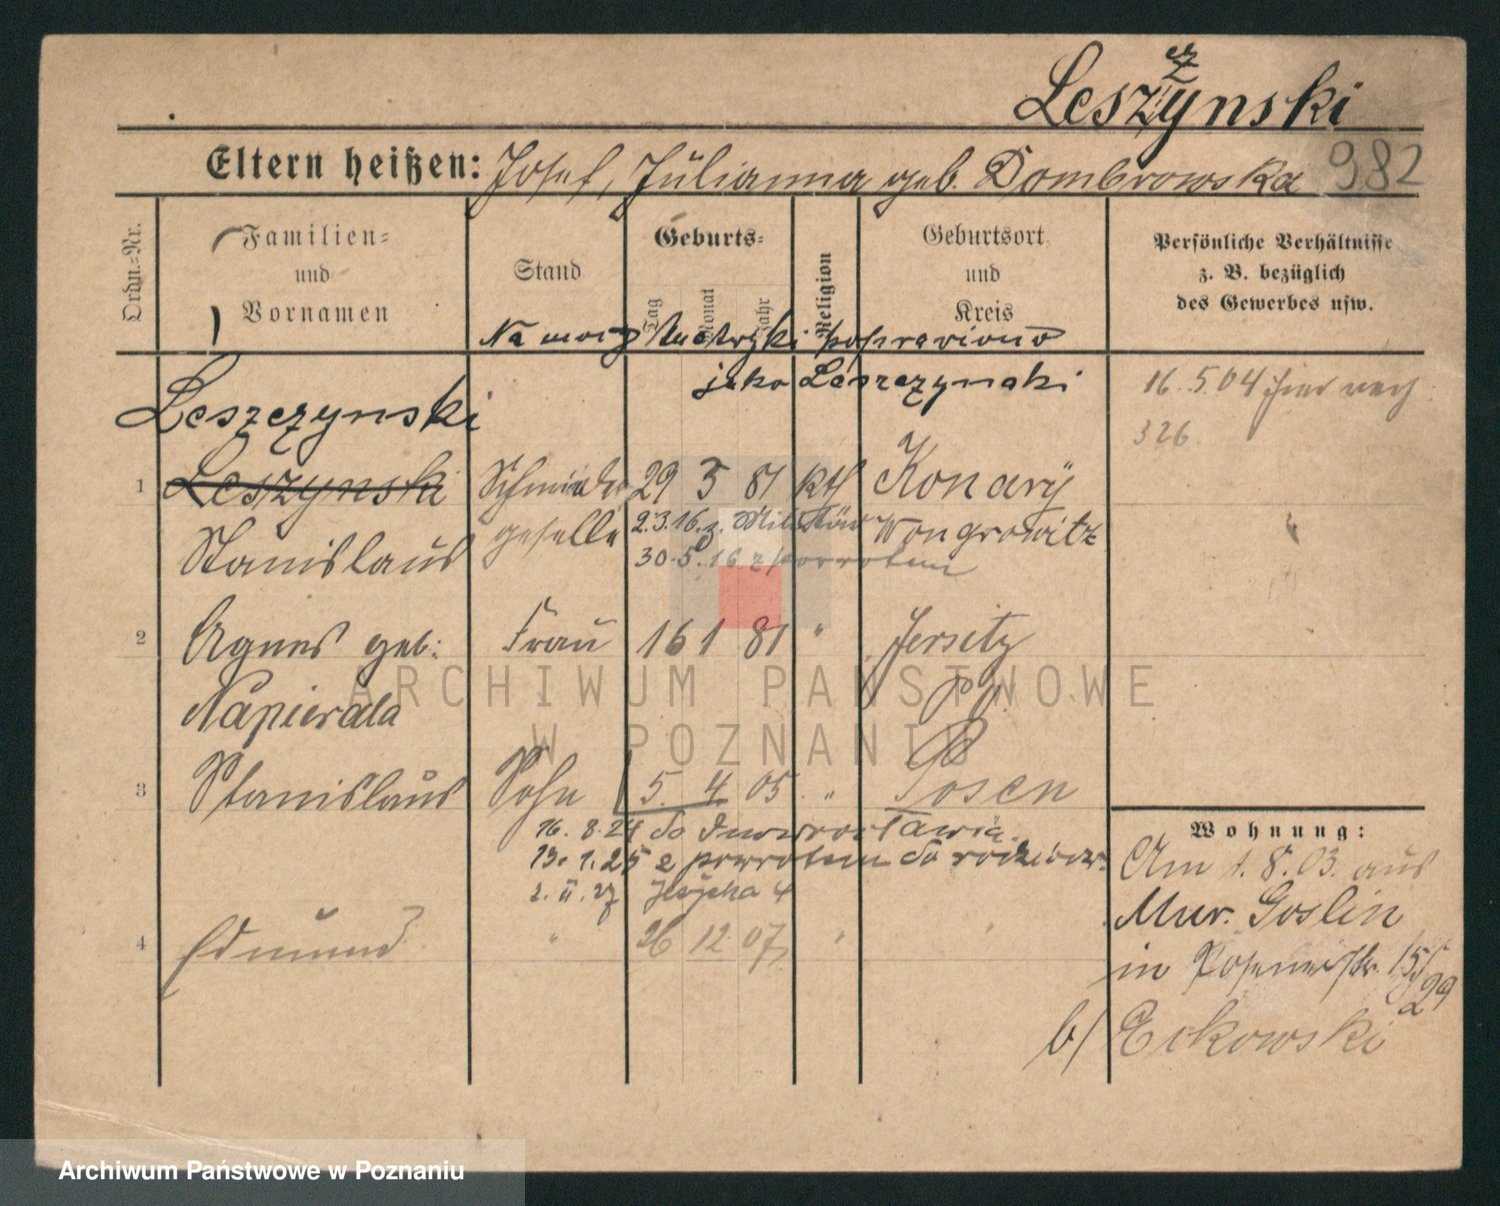 Leszczynski
Eltern heißen: Josef, Julianna geb. Dombrowska 982
Ordn.-Nr.
Familien-
und
Vornamen
Stand
Geburts-
Tag
Monat
Jahr
Religion
Geburtsort
und
Kreis
Persönliche Verhältnisse
z. B. bezüglich
des Gewerbes usw.
Na mocy metryki poprawiono
jako Leszczynski
16.5.04 hier
326
Leszczynski
1 Leszynski Schmiede 29 3 81 kth Konary
Stanislaus geselle 2.3.16. z. Militär Wongrowitz
30.5.16 z powrotem
2 Agnes geb: Frau 16 1 81 " Jersitz
Napierala
3 Stanislaus Sohn 5. 4 05 " Posen
16.8.24 do Inowrocławia
13.1.25 z powrotem do rodziców.
2.II.27
4 Edmund " 26 12 07
Wohnung:
Am 1.8.03. aus
Mur. Goslin
in Posenerstr. 15
29
b/ Eckowski
ARCHIWUM PAŃSTWOWE
W POZNANIU
Archiwum Państwowe w Poznaniu